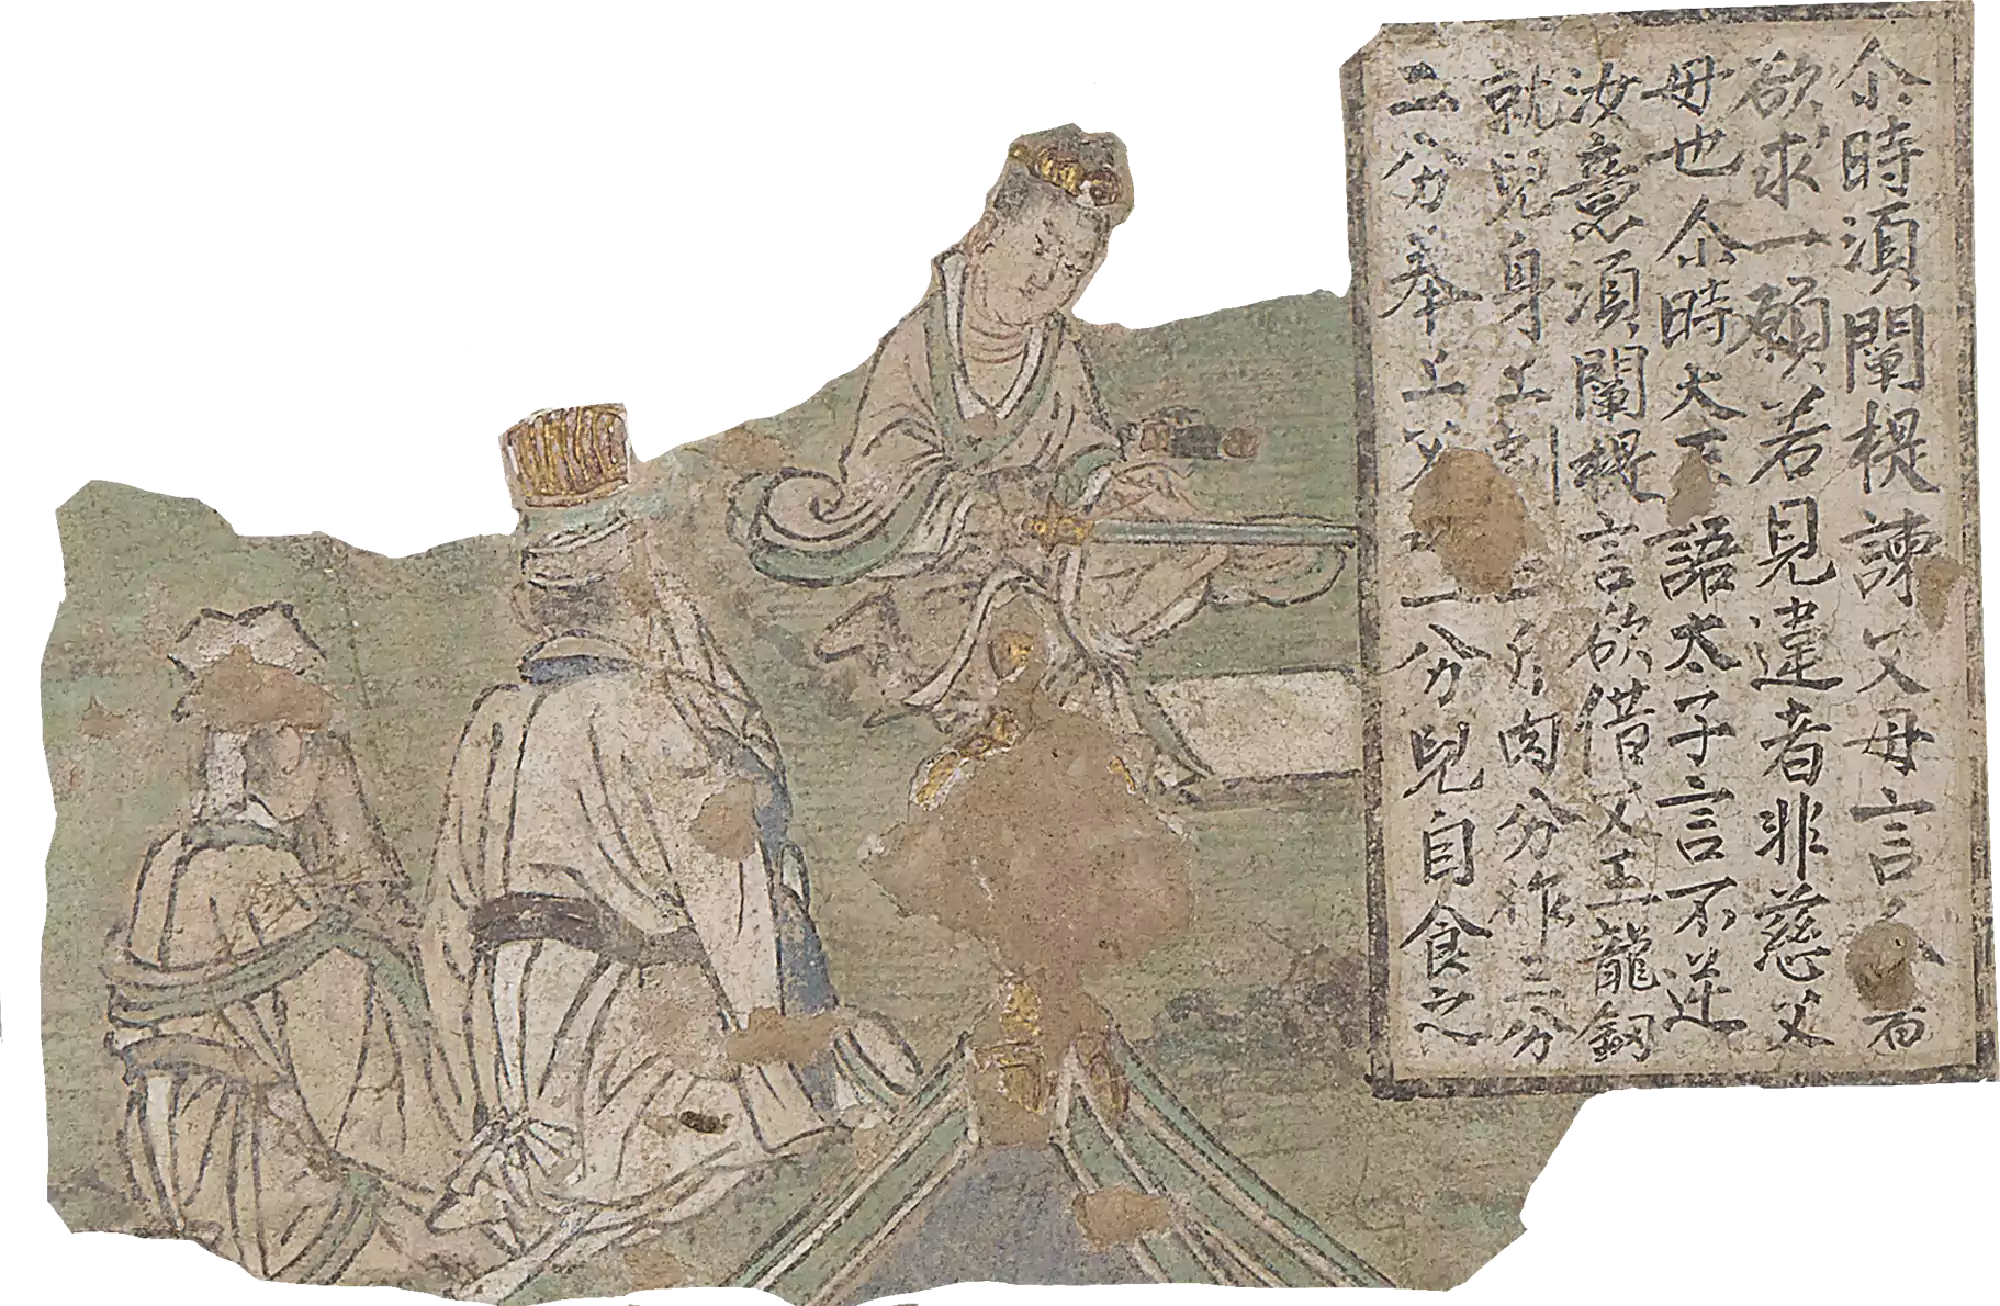 尒時須闡提諫父母言 而
欲求一願若見違者非慈父
母也尒時大王語太子言不逆
汝意須闡提言欲借父王龍釰
就兒身上割 斤肉分作三分
二分奉上父 一分兒自食之